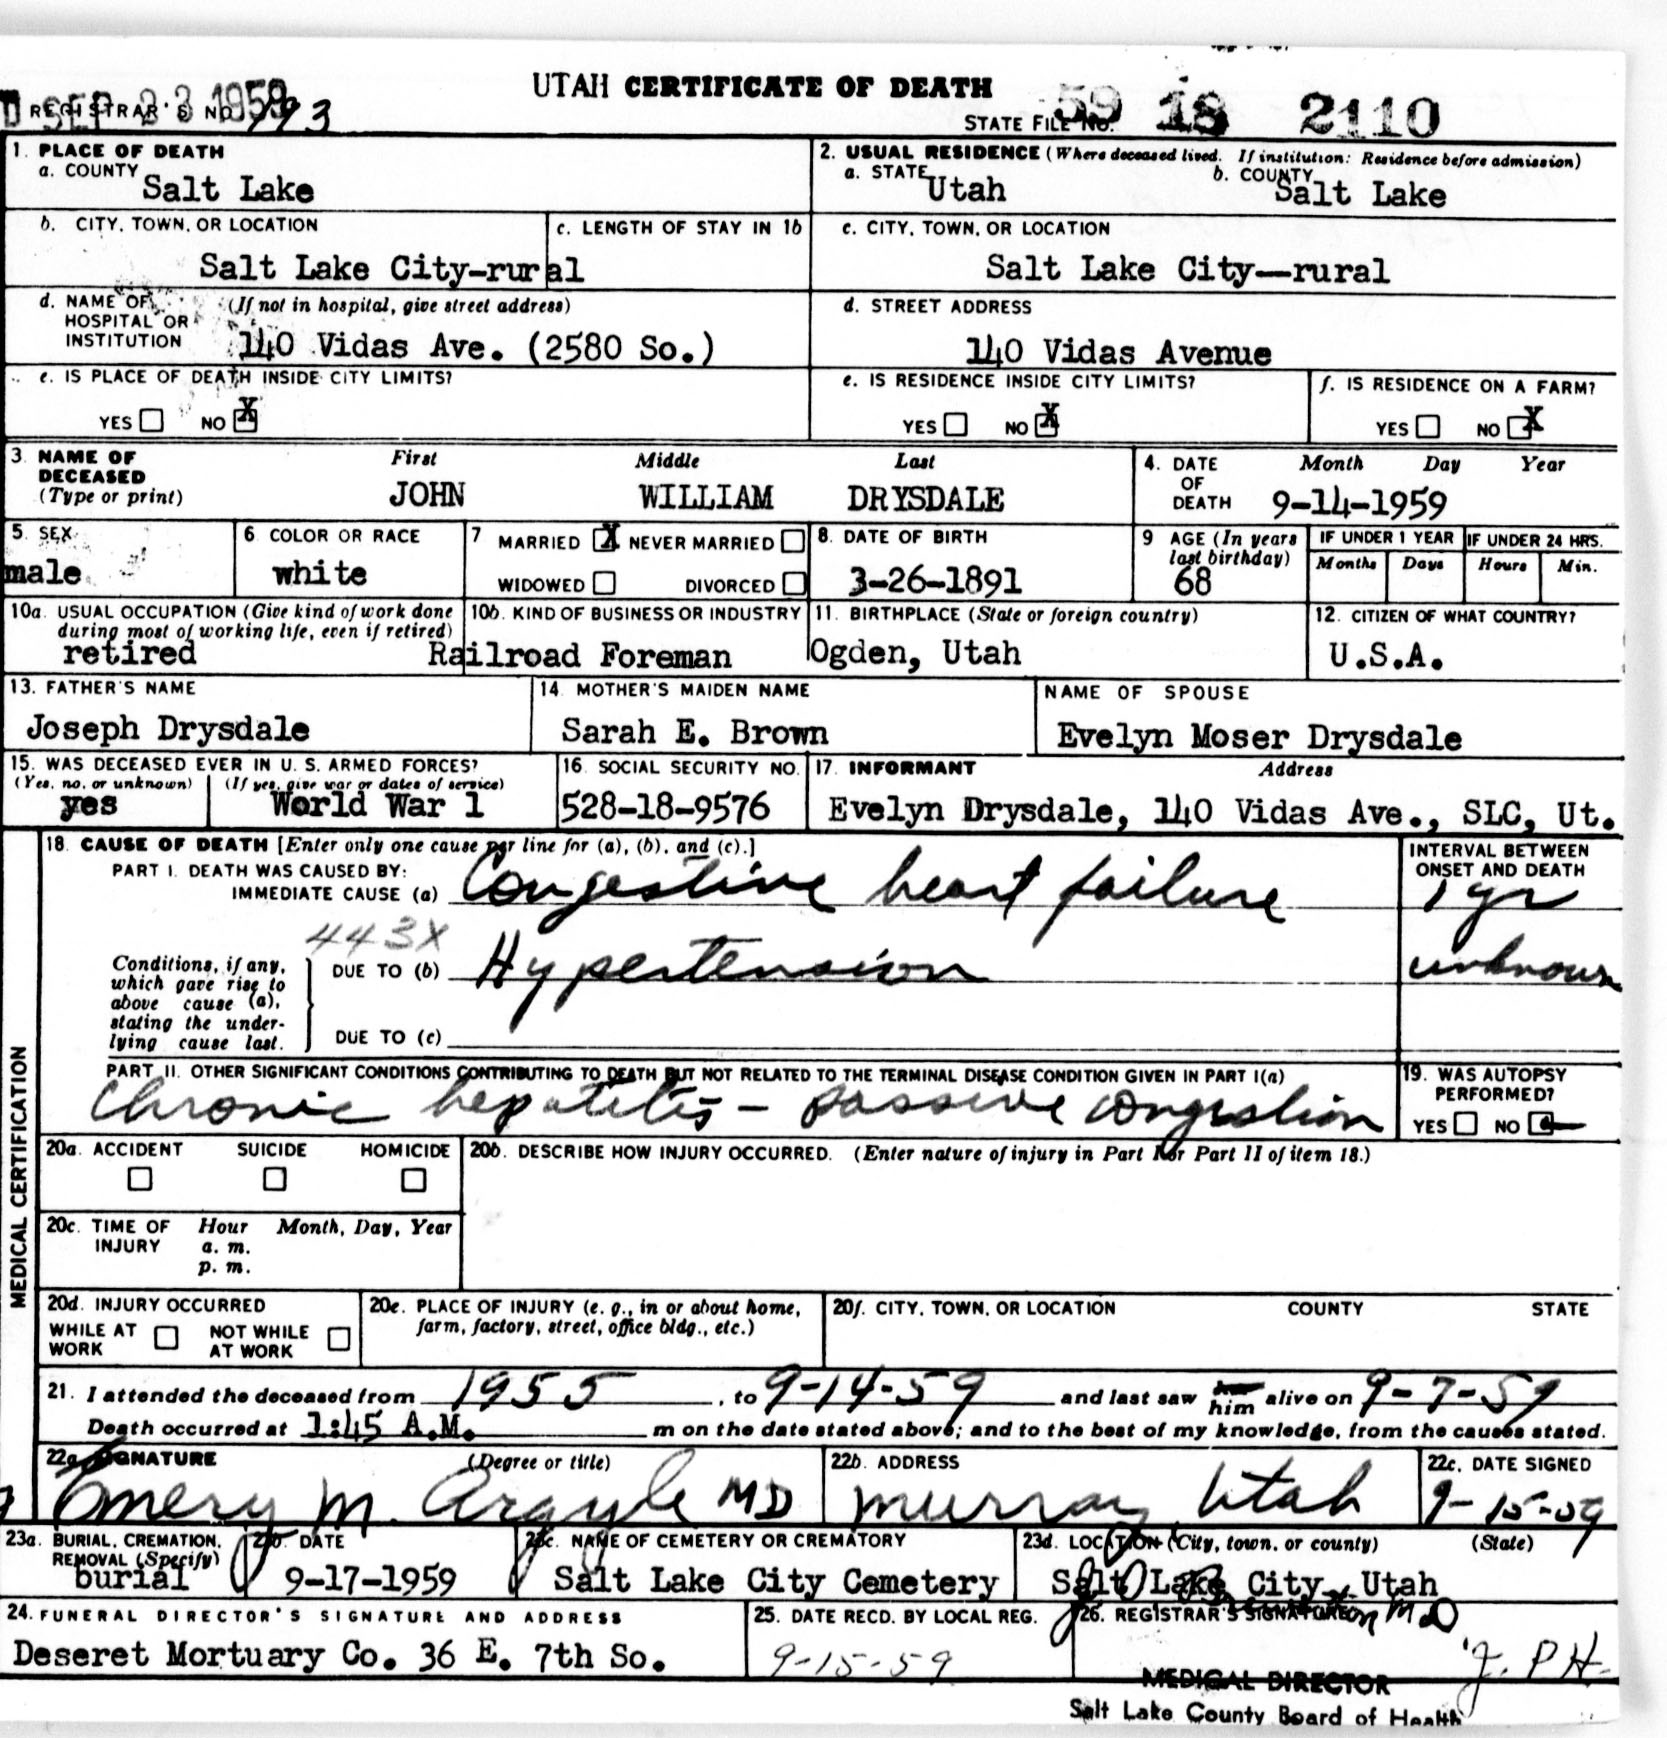 UTAH CERTIFICATE OF DEATH
SEP 23 1959
REGISTRAR'S NO.
STATE FILE NO. 59 18 2110
1. PLACE OF DEATH
a. COUNTY Salt Lake
2. USUAL RESIDENCE (Where deceased lived. If institution: Residence before admission)
a. STATE Utah b. COUNTY Salt Lake
b. CITY, TOWN, OR LOCATION Salt Lake City-rural
c. LENGTH OF STAY IN 1b
c. CITY, TOWN, OR LOCATION
Salt Lake City—rural
d. NAME OF HOSPITAL OR INSTITUTION (If not in hospital, give street address)
140 Vidas Ave. (2580 So.)
d. STREET ADDRESS
140 Vidas Avenue
e. IS PLACE OF DEATH INSIDE CITY LIMITS?
YES NO X
e. IS RESIDENCE INSIDE CITY LIMITS?
YES NO X
f. IS RESIDENCE ON A FARM?
YES NO X
3. NAME OF DECEASED (Type or print)
First Middle Last
JOHN WILLIAM DRYSDALE
4. DATE OF DEATH Month Day Year
9-14-1959
5. SEX
male
6. COLOR OR RACE
white
7 MARRIED X NEVER MARRIED
WIDOWED DIVORCED
8. DATE OF BIRTH
3-26-1891
9 AGE (In years last birthday)
68
IF UNDER 1 YEAR IF UNDER 24 HRS.
Months Days Hours Min.
10a. USUAL OCCUPATION (Give kind of work done during most of working life, even if retired)
retired
10b. KIND OF BUSINESS OR INDUSTRY
Railroad Foreman
11. BIRTHPLACE (State or foreign country)
Ogden, Utah
12. CITIZEN OF WHAT COUNTRY?
U.S.A.
13. FATHER'S NAME
Joseph Drysdale
14. MOTHER'S MAIDEN NAME
Sarah E. Brown
NAME OF SPOUSE
Evelyn Moser Drysdale
15. WAS DECEASED EVER IN U. S. ARMED FORCES?
(Yes, no, or unknown) (If yes, give war or dates of service)
yes World War 1
16. SOCIAL SECURITY NO.
528-18-9576
17. INFORMANT Address
Evelyn Drysdale, 140 Vidas Ave., SLC, Ut.
MEDICAL CERTIFICATION
18. CAUSE OF DEATH [Enter only one cause per line for (a), (b), and (c).]
PART I. DEATH WAS CAUSED BY:
IMMEDIATE CAUSE (a) Congestive heart failure
INTERVAL BETWEEN ONSET AND DEATH
1 yr
443X
Conditions, if any, which gave rise to above cause (a), stating the underlying cause last.
DUE TO (b) Hypertension
unknown
DUE TO (c)
PART II. OTHER SIGNIFICANT CONDITIONS CONTRIBUTING TO DEATH BUT NOT RELATED TO THE TERMINAL DISEASE CONDITION GIVEN IN PART I(a)
Chronic hepatitis - passive congestion
19. WAS AUTOPSY PERFORMED?
YES NO
20a. ACCIDENT SUICIDE HOMICIDE
20b. DESCRIBE HOW INJURY OCCURRED. (Enter nature of injury in Part I or Part II of item 18.)
20c. TIME OF INJURY Hour Month, Day, Year
a. m.
p. m.
20d. INJURY OCCURRED
WHILE AT WORK NOT WHILE AT WORK
20e. PLACE OF INJURY (e. g., in or about home, farm, factory, street, office bldg., etc.)
20f. CITY, TOWN, OR LOCATION COUNTY STATE
21. I attended the deceased from 1955, to 9-14-59 and last saw him alive on 9-7-59
Death occurred at 1:45 A.M. m on the date stated above; and to the best of my knowledge, from the causes stated.
22a. SIGNATURE (Degree or title)
Emery M. Argyle MD
22b. ADDRESS
Murray Utah
22c. DATE SIGNED
9-15-59
23a. BURIAL, CREMATION, REMOVAL (Specify)
burial
23b. DATE
9-17-1959
23c. NAME OF CEMETERY OR CREMATORY
Salt Lake City Cemetery
23d. LOCATION (City, town, or county) (State)
Salt Lake City, Utah
24. FUNERAL DIRECTOR'S SIGNATURE AND ADDRESS
Deseret Mortuary Co. 36 E. 7th So.
25. DATE RECD. BY LOCAL REG.
9-15-59
26. REGISTRAR'S SIGNATURE
MEDICAL DIRECTOR
J. P H.
Salt Lake County Board of Health